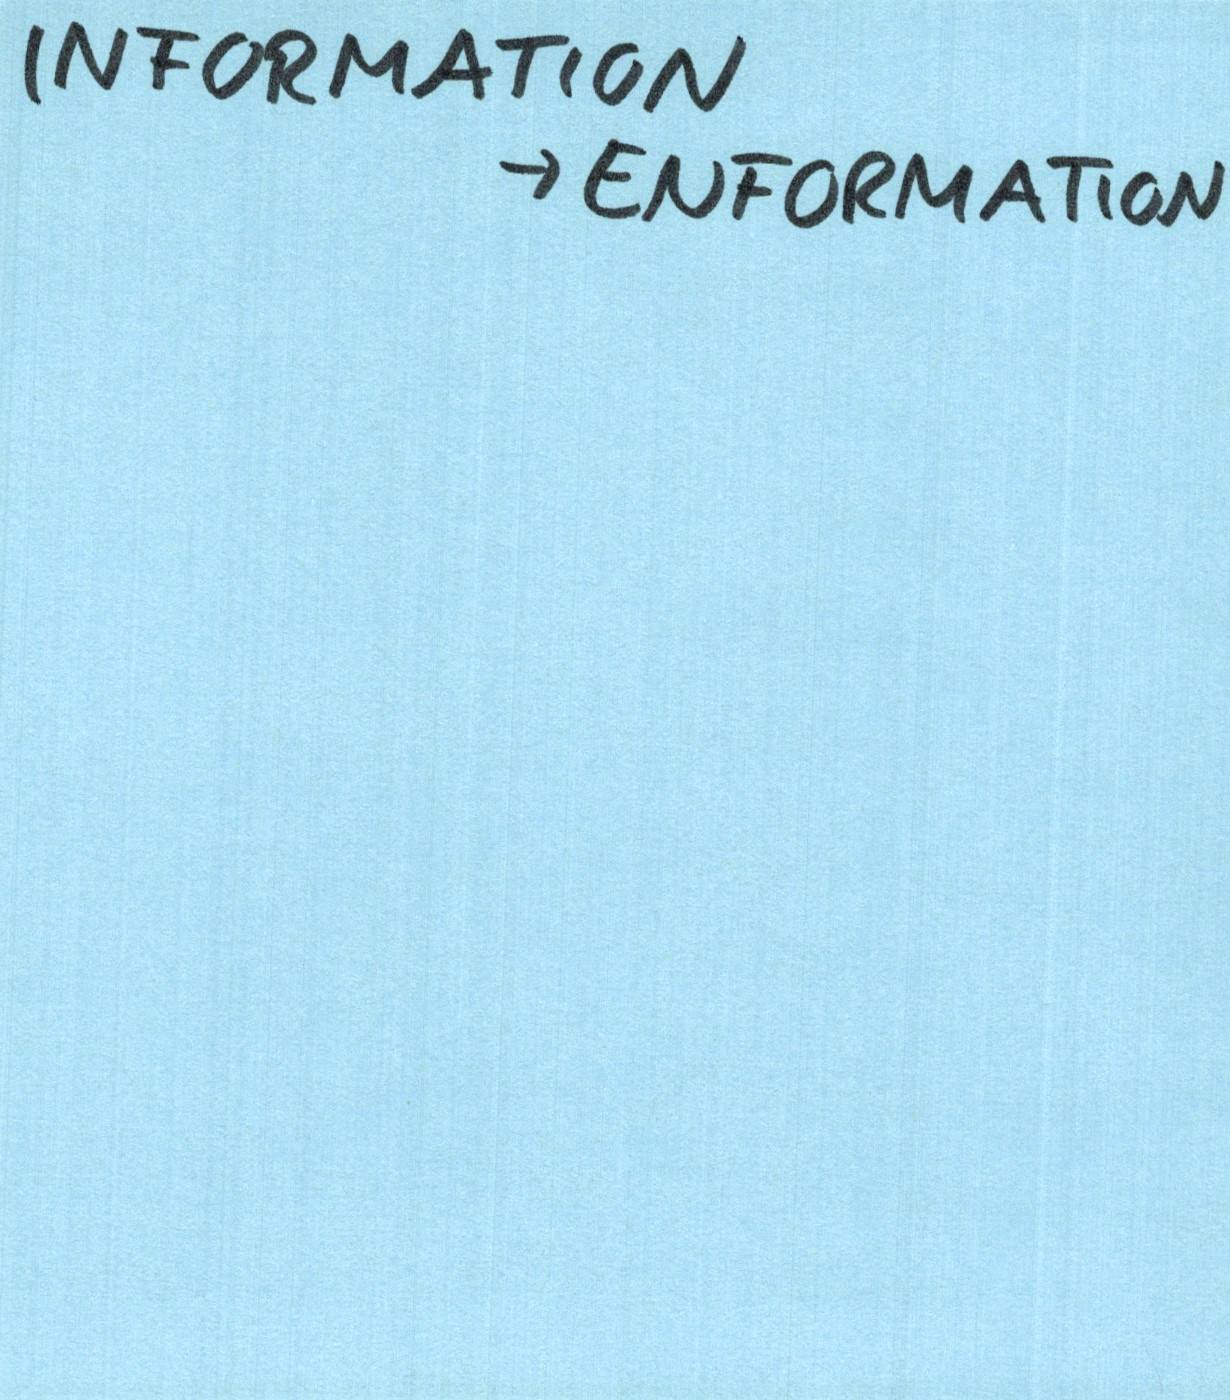 INFORMATION
→ ENFORMATION